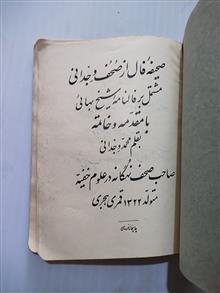 صحیفه فال از صحف وجدانی
مشتمل بر فالنامه شیخ بهائی
با مقدمه و خاتمه
بقلم محمد وجدانی
صاحب صحف نهگانه در علوم خفیه
متولد ۱۳۲۲ قمری هجری